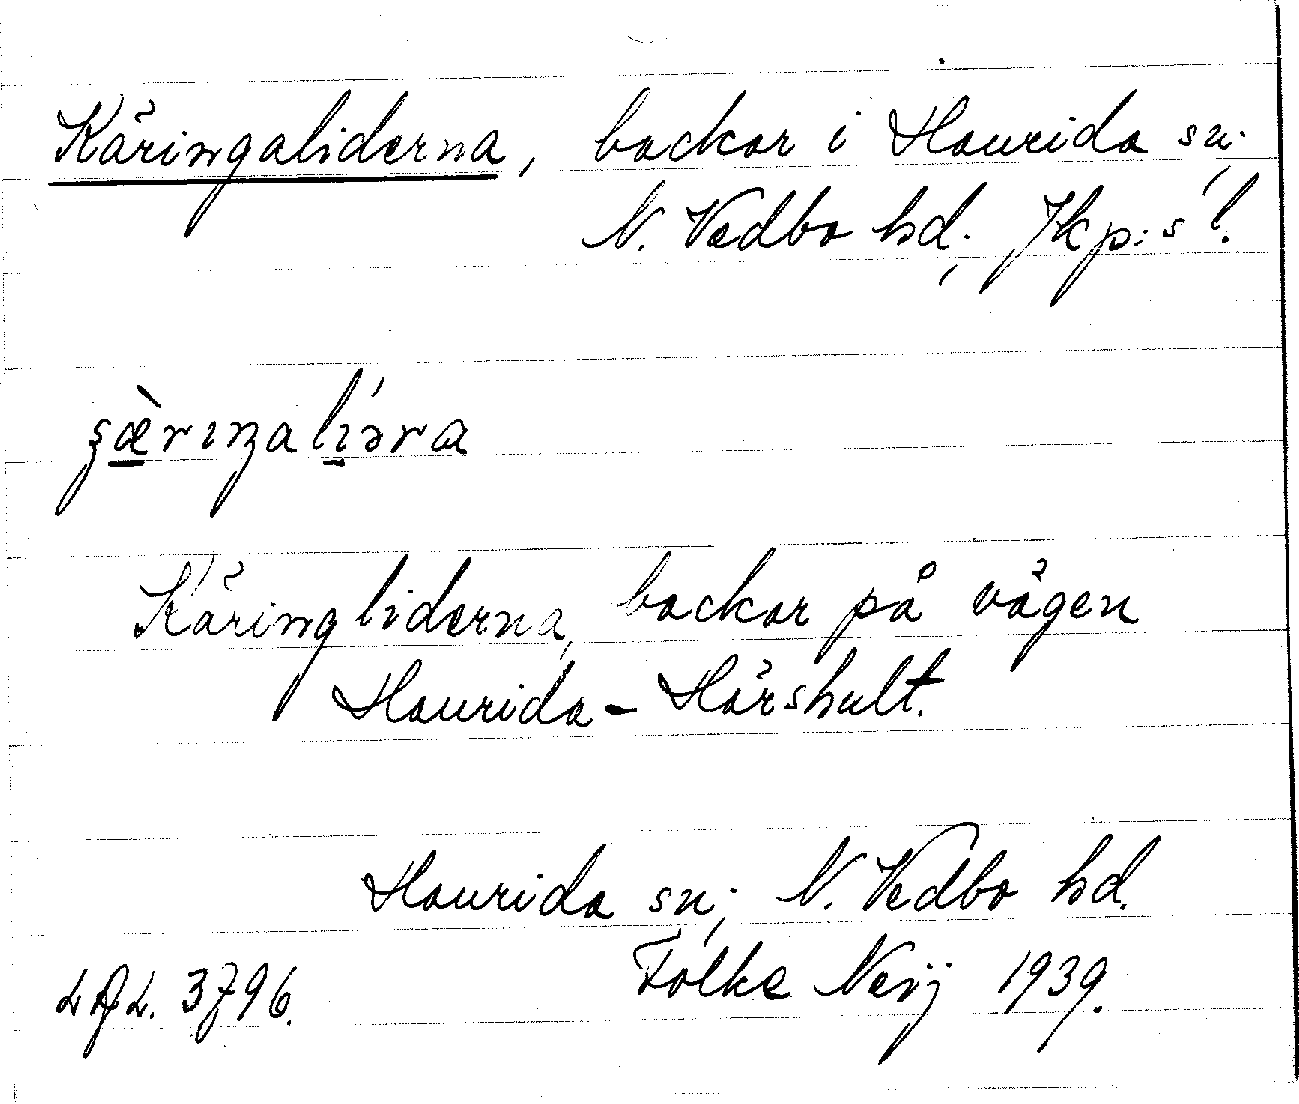 Käringaliderna, backar i Haurida sn;
N. Vedbo hd; Jkp:s l.
Käringliderna, backar på vägen
Haurida - Hårshult.
Haurida sn; N. Vedbo hd.
Folke Nerij 1939.
LAL. 3796.